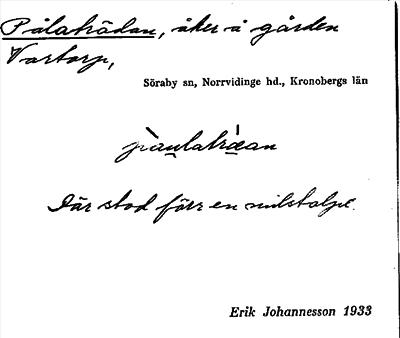 Pålaträdan, åker å gården
Vartorp,
Söraby sn, Norrvidinge hd., Kronobergs län
Där stod förr en milstolpe.
Erik Johannesson 1933